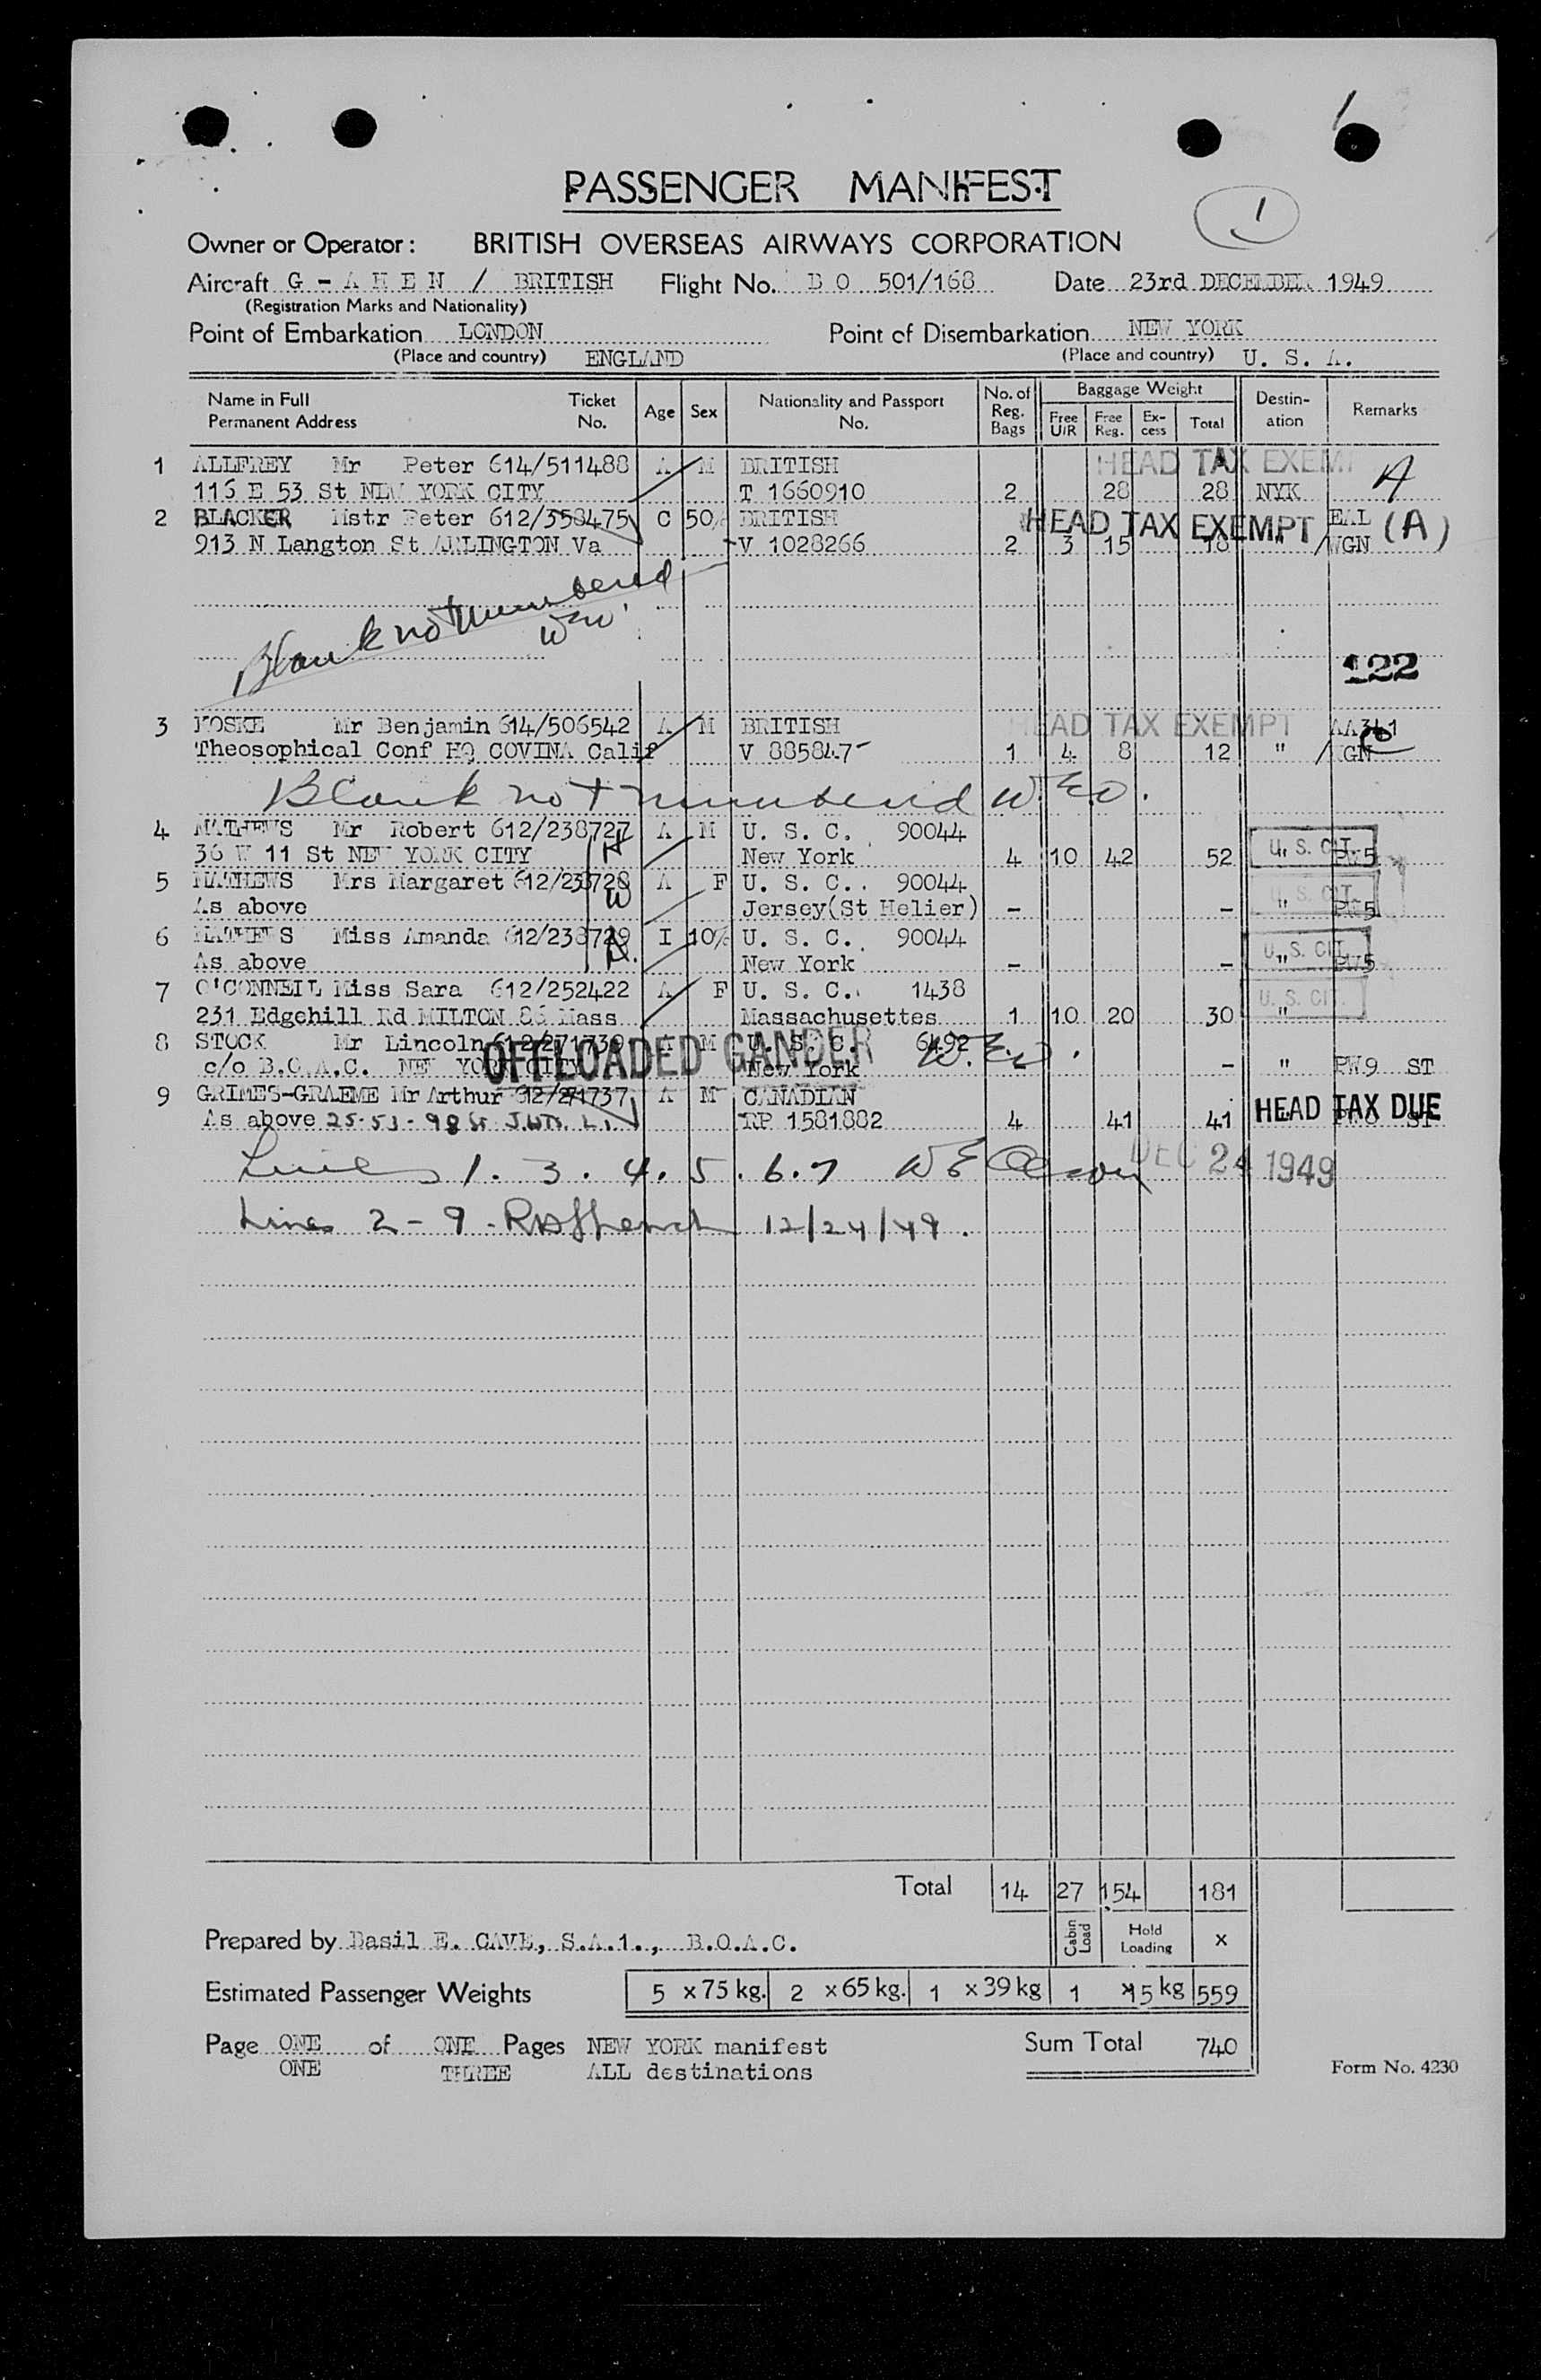 1
PASSENGER MANIFEST
1
Owner or Operator: BRITISH OVERSEAS AIRWAYS CORPORATION
Aircraft G - A H E N / BRITISH Flight No. B O 501/168 Date 23rd DECEMBER 1949
(Registration Marks and Nationality)
Point of Embarkation LONDON Point of Disembarkation NEW YORK
(Place and country) ENGLAND (Place and country) U. S. A.
Name in Full Permanent Address Ticket No. Age Sex Nationality and Passport No. No. of Reg. Bags Baggage Weight Free U/R Free Reg. Ex-cess Total Destin-ation Remarks
1 ALLFREY Mr Peter 614/511488 A M BRITISH HEAD TAX EXEM A
116 E 53 St NEW YORK CITY T 1660910 2 28 28 NYK
2 BLACKER Mstr Peter 612/358475 C 50% BRITISH HEAD TAX EXEMPT EAL (A)
913 N Langton St ARLINGTON Va V 1028266 2 3 15 18 " /WGN
Blank not numbered
WEO
122
3 KOSKE Mr Benjamin 614/506542 A M BRITISH HEAD TAX EXEMPT AA341
Theosophical Conf HQ COVINA Calif V 885847 1 4 8 12 " /
Blank not numbered W.E.O.
4 MATHEWS Mr Robert 612/238727 A M U. S. C. 90044
36 W 11 St NEW YORK CITY New York 4 10 42 52 " U. S. CIT. PW5
5 MATHEWS Mrs Margaret 612/238728 A F U. S. C. 90044
As above Jersey(St Helier) - - " U. S. CIT. PW5
6 MATHEWS Miss Amanda 612/238729 I 10% U. S. C. 90044
As above New York - - " U. S. CIT. PW5
7 O'CONNEIL Miss Sara 612/252422 A F U. S. C. 1438 U. S. CIT.
231 Edgehill Rd MILTON 86 Mass Massachusettes 1 10 20 30 "
8 STOCK Mr Lincoln 612/271739 A M U. S. C. 6492 W.E.O.
OFFLOADED GANDER
c/o B.O.A.C. NEW YORK CITY New York - " PW9 ST
9 GRIMES-GRAEME Mr Arthur 612/271737 A M CANADIAN
As above 25-53-98 St. L.I. RP 1581882 4 41 41 HEAD TAX DUE ST
Lines 1. 3. 4. 5. 6. 7 W E DEC 24 1949
Lines 2 - 9 - 12/24/49.
Total 14 27 154 181
Prepared by Basil E. CAVE, S.A.1., B.O.A.C. Cabin Load Hold Loading x
Estimated Passenger Weights 5 x 75 kg. 2 x 65 kg. 1 x 39 kg 1 x 15 kg 559
Page ONE of ONE Pages NEW YORK manifest Sum Total 740
ONE THREE ALL destinations Form No. 4230